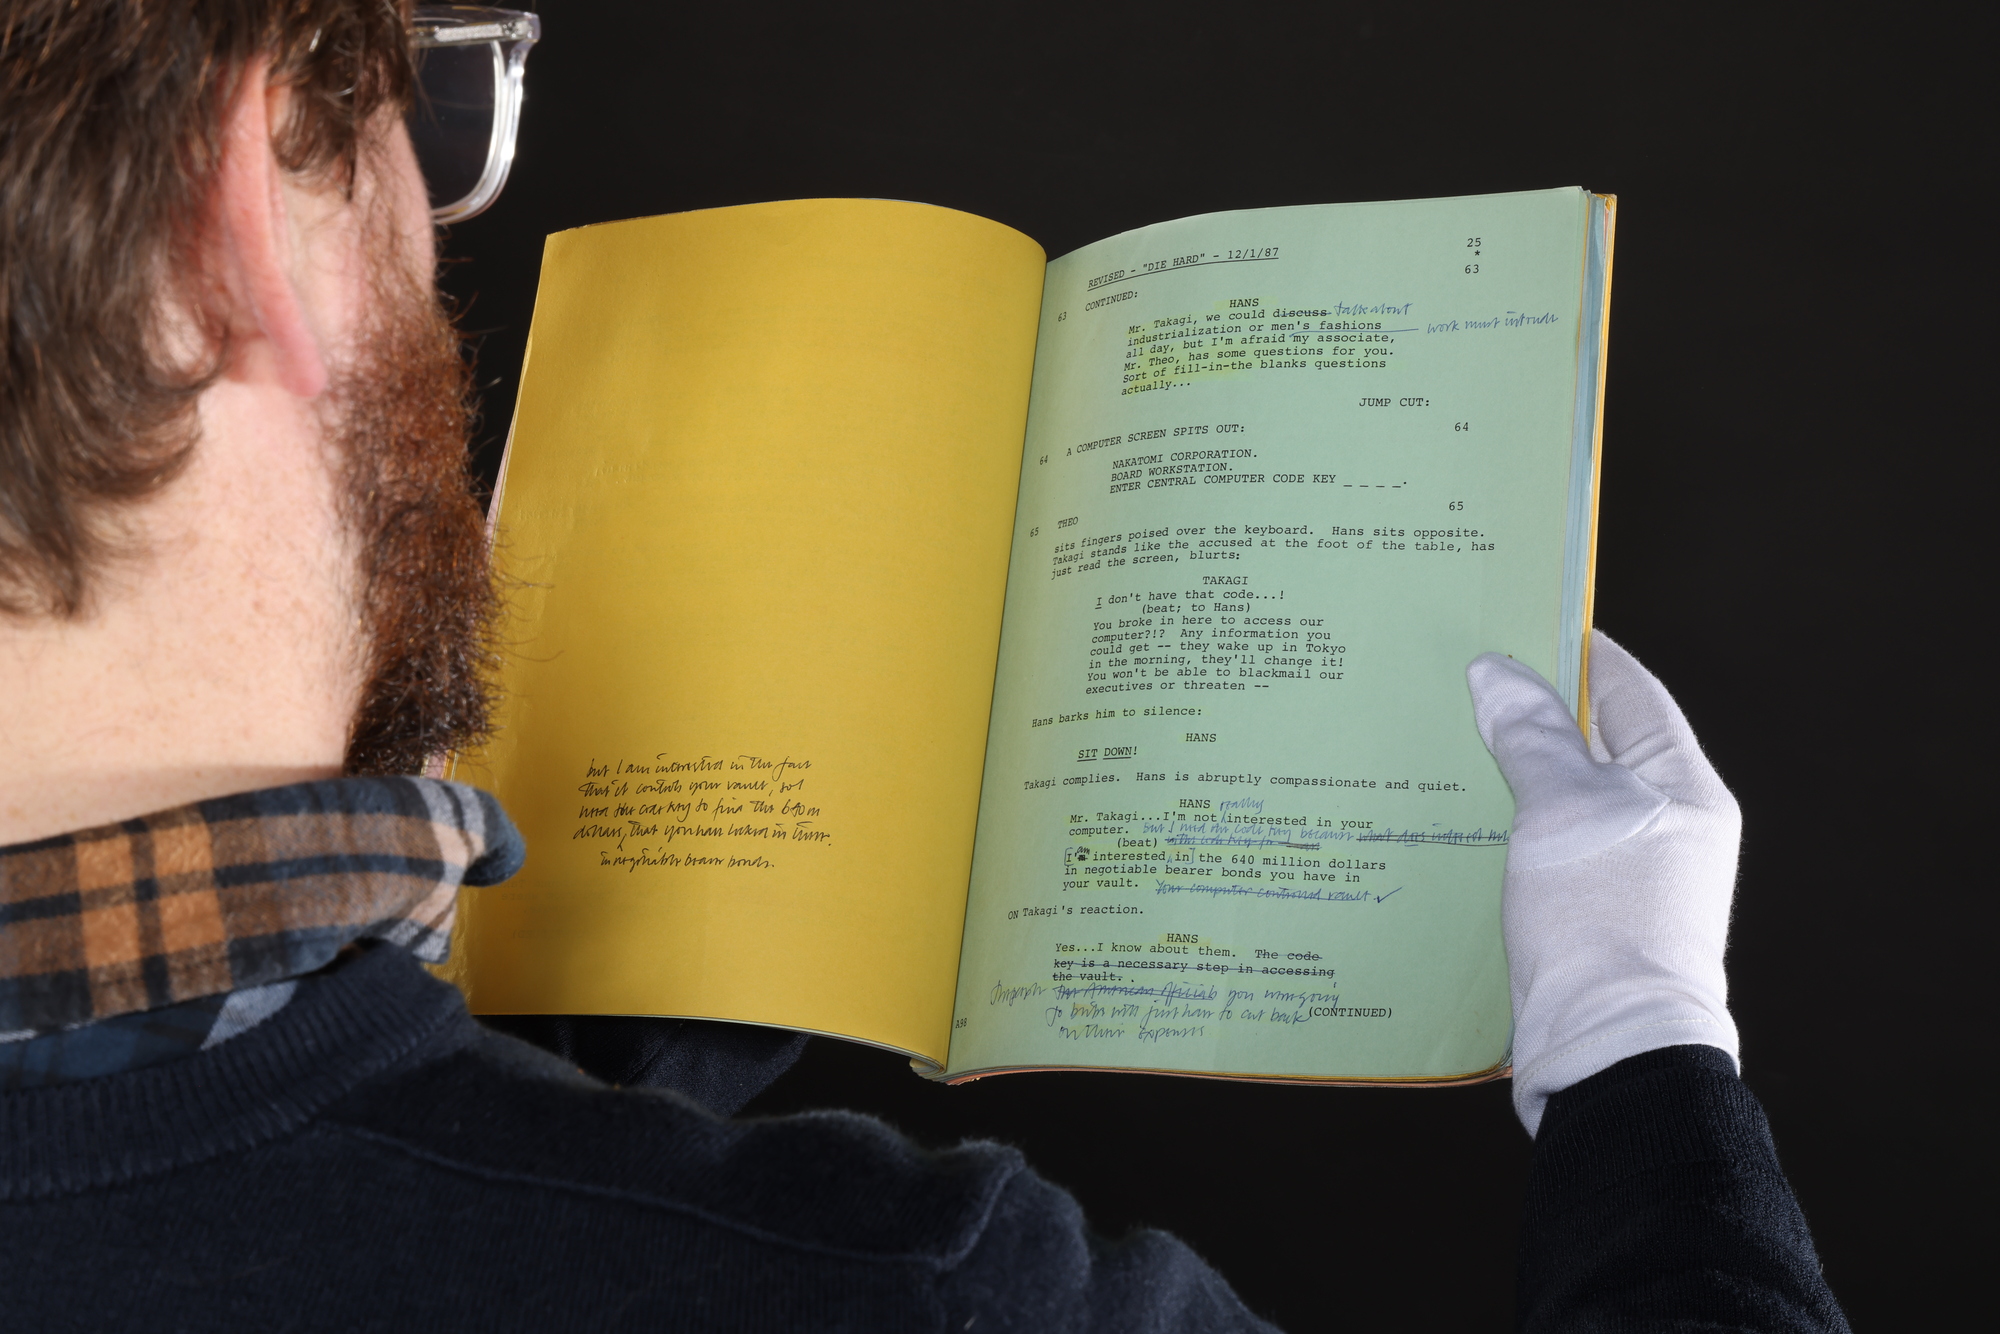 but I am interested in the fact
that it controls your vault, so I
need the code key to find the 640m
dollars, that you have locked in there.
in negotiable bearer bonds.
REVISED - "DIE HARD" - 12/1/87
25
*
63 CONTINUED: 63
HANS
Mr. Takagi, we could discuss talk about
industrialization or men's fashions work must intrude
all day, but I'm afraid my associate,
Mr. Theo, has some questions for you.
Sort of fill-in-the blanks questions
actually...
JUMP CUT:
64 A COMPUTER SCREEN SPITS OUT: 64
NAKATOMI CORPORATION.
BOARD WORKSTATION.
ENTER CENTRAL COMPUTER CODE KEY _ _ _ _.
65 THEO 65
sits fingers poised over the keyboard. Hans sits opposite.
Takagi stands like the accused at the foot of the table, has
just read the screen, blurts:
TAKAGI
I don't have that code...!
(beat; to Hans)
You broke in here to access our
computer?!? Any information you
could get -- they wake up in Tokyo
in the morning, they'll change it!
You won't be able to blackmail our
executives or threaten --
Hans barks him to silence:
HANS
SIT DOWN!
Takagi complies. Hans is abruptly compassionate and quiet.
HANS really
Mr. Takagi...I'm not interested in your
computer. But I need the code key because what does interest me
(beat)
I am interested in the 640 million dollars
in negotiable bearer bonds you have in
your vault. Your computer controlled vault
ON Takagi's reaction.
HANS
Yes...I know about them. The code
key is a necessary step in accessing
the vault.
American officials you were going
to bribe will just have to cut back (CONTINUED)
on their expenses
A98